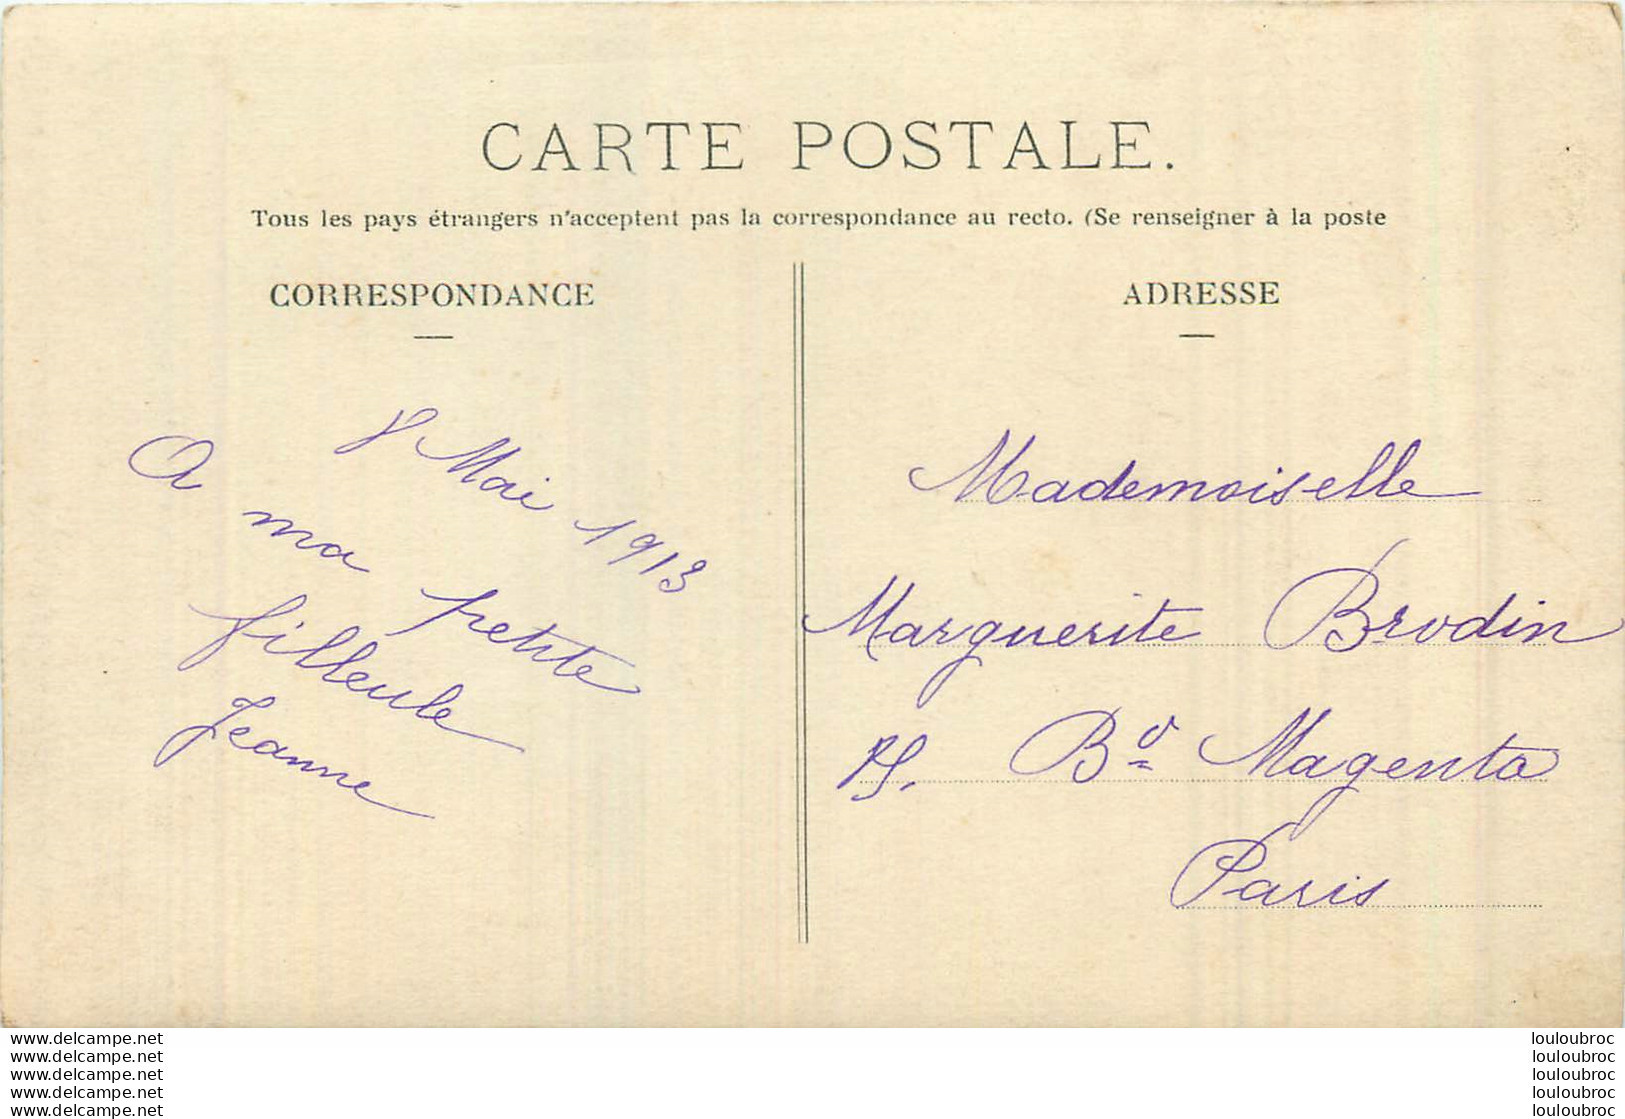 CARTE POSTALE.
Tous les pays étrangers n'acceptent pas la correspondance au recto. (Se renseigner à la poste
CORRESPONDANCE
8 Mai 1913
A ma petite
filleule
Jeanne
ADRESSE
Mademoiselle
Marguerite Brodin
Bd Magenta
Paris
www.delcampe.net
www.delcampe.net
www.delcampe.net
www.delcampe.net
www.delcampe.net
louloubroc
louloubroc
louloubroc
louloubroc
louloubroc